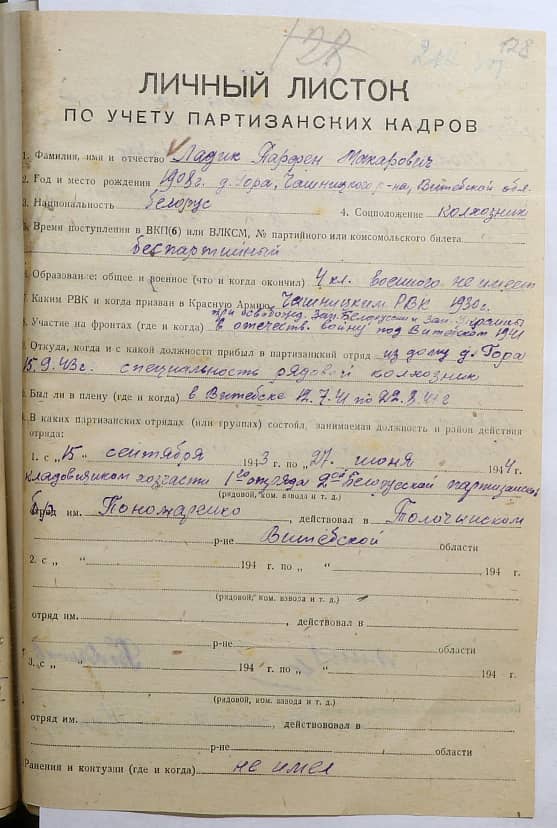 128
128
ЛИЧНЫЙ ЛИСТОК
ПО УЧЕТУ ПАРТИЗАНСКИХ КАДРОВ
1. Фамилия, имя и отчество Ладик Парфен Макарович
2. Год и место рождения 1908г. д. Гора, Чашницкого р-на, Витебской обл.
3. Национальность белорус 4. Соцположение колхозник
5. Время поступления в ВКП(б) или ВЛКСМ, № партийного или комсомольского билета
беспартийный
6. Образование: общее и военное (что и когда окончил) 4 кл. военного не имеет
7. Каким РВК и когда призван в Красную Армию Чашницким РВК 1930г.
при освобожд. Зап. Белоруссии и Зап. Украины
8. Участие на фронтах (где и когда) в отечеств. войну под Витебском 1941
9. Откуда, когда и с какой должности прибыл в партизанский отряд из дому д. Гора
15.9.43г. специальность рядовой колхозник
Был ли в плену (где и когда) в Витебске 12.7.41 по 22.8.41г
В каких партизанских отрядах (или группах) состоял, занимаемая должность и район действия
отряда:
1. с „15 „ сентября 1943 г. по „27„ июня 1944 г.
кладовщиком хозчасти 1го отряда 2ой Белорусской партизанск
(рядовой, ком. взвода и т. д.)
отряд им. Пономаренко, действовал в Толочинском
р-не Витебской области
2. с „ “ 194 г. по „ “ 194 г.
(рядовой, ком. взвода и т. д.)
отряд им. , действовал в
р-не области
3. с „ “ 194 г. по „ “ 194 г.
(рядовой, ком. взвода и т. д.)
отряд им. , действовал в
р-не области
Ранения и контузии (где и когда) не имел